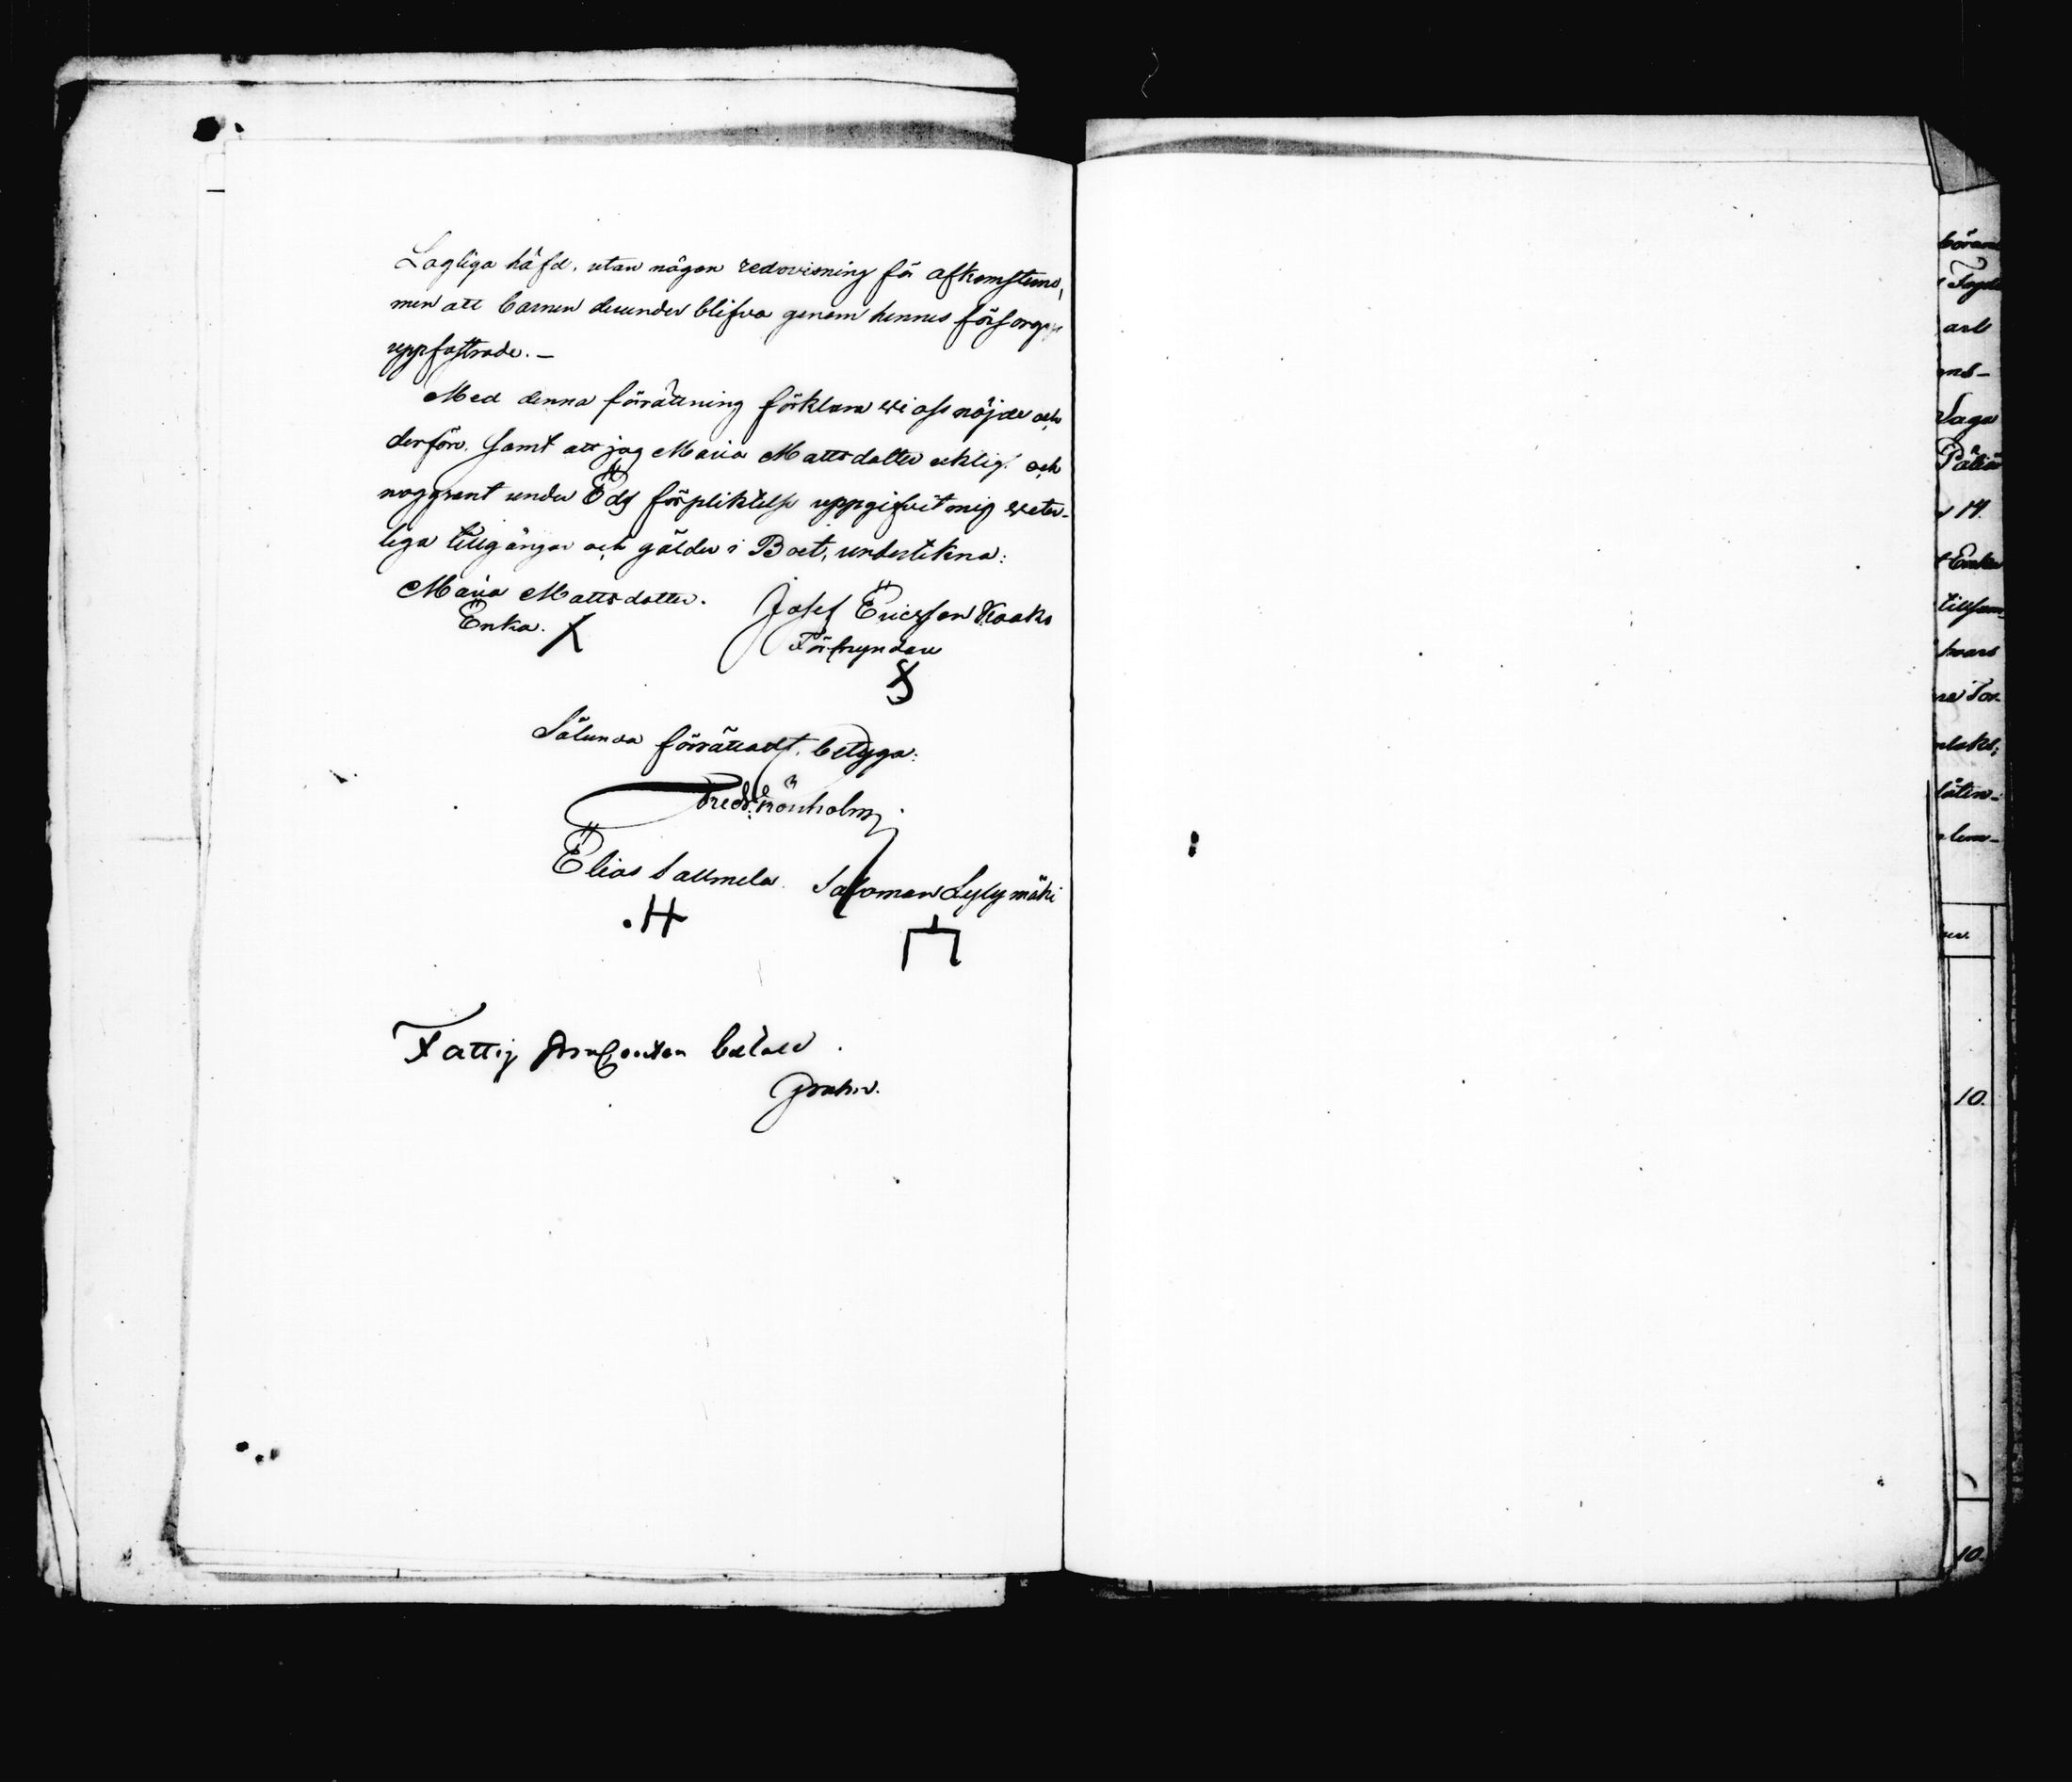 Lagliga häfd, utan någon redovisning för afkomstene,
men att barnen derunder blifva genom hennes försorg
uppfostrade. –
Med denna förrättning förklara wi oss nöjde och
derföre. Samt att jag Maria Mattsdotter ricktig och
noggrant under Eds förpliktelse uppgifvit mig weter-
liga tillgångar och gälder i Boet, underteckna:
Maria Mattsdotter. Josef Ericsson Kaaks
Enka. Förmyndare
Sålunda förrättadt, betyga:
Fredr. Grönholm
Elias Sallmela. Salomon Lylymäki
Fattig Procenten betald.
börande
Fogde
arb
Laga
14.
Enka
tillsam
hvars
10.
10.